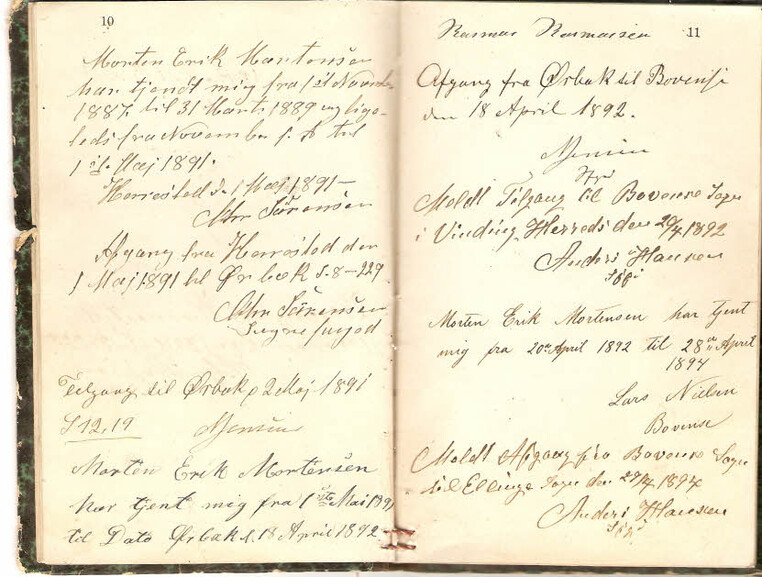 10
Morten Erik Mortensen
har tjendt mig fra 1st Novembr
1887. til 31 Marts 1889 og lige-
leds fra November s. A til
1st. Maj 1891.
Herrested d. 1 Maj 1891 —
Chr Sørensen
Afgang fra Herrested den
1 Maj 1891 til Ørbæk S. 8 – 229.
Chr Sørensen
Sognefoged
Tilgang til Ørbæk d 2 Maj 1891
S 12. 19
Morten Erik Mortensen
har tjent mig fra 1ste Mai 1891
til Dato Ørbæk d. 18 April 1892
11
Rasmus Rasmussen
Afgang fra Ørbæk til Bovense
den 18 April 1892.
Meldt Tilgang til Bovense Sogn
i Vinding Herreds den 20/4 1892
Anders Hansen
Sgf:
Morten Erik Mortensen har tjent
mig fra 20de April 1892 til 28de April
1894
Lars Nielsen
Bovense
Meldt Afgang fra Bovense Sogn
til Ellinge Sogn den 27/4 1894
Anders Hansen
Sgf: